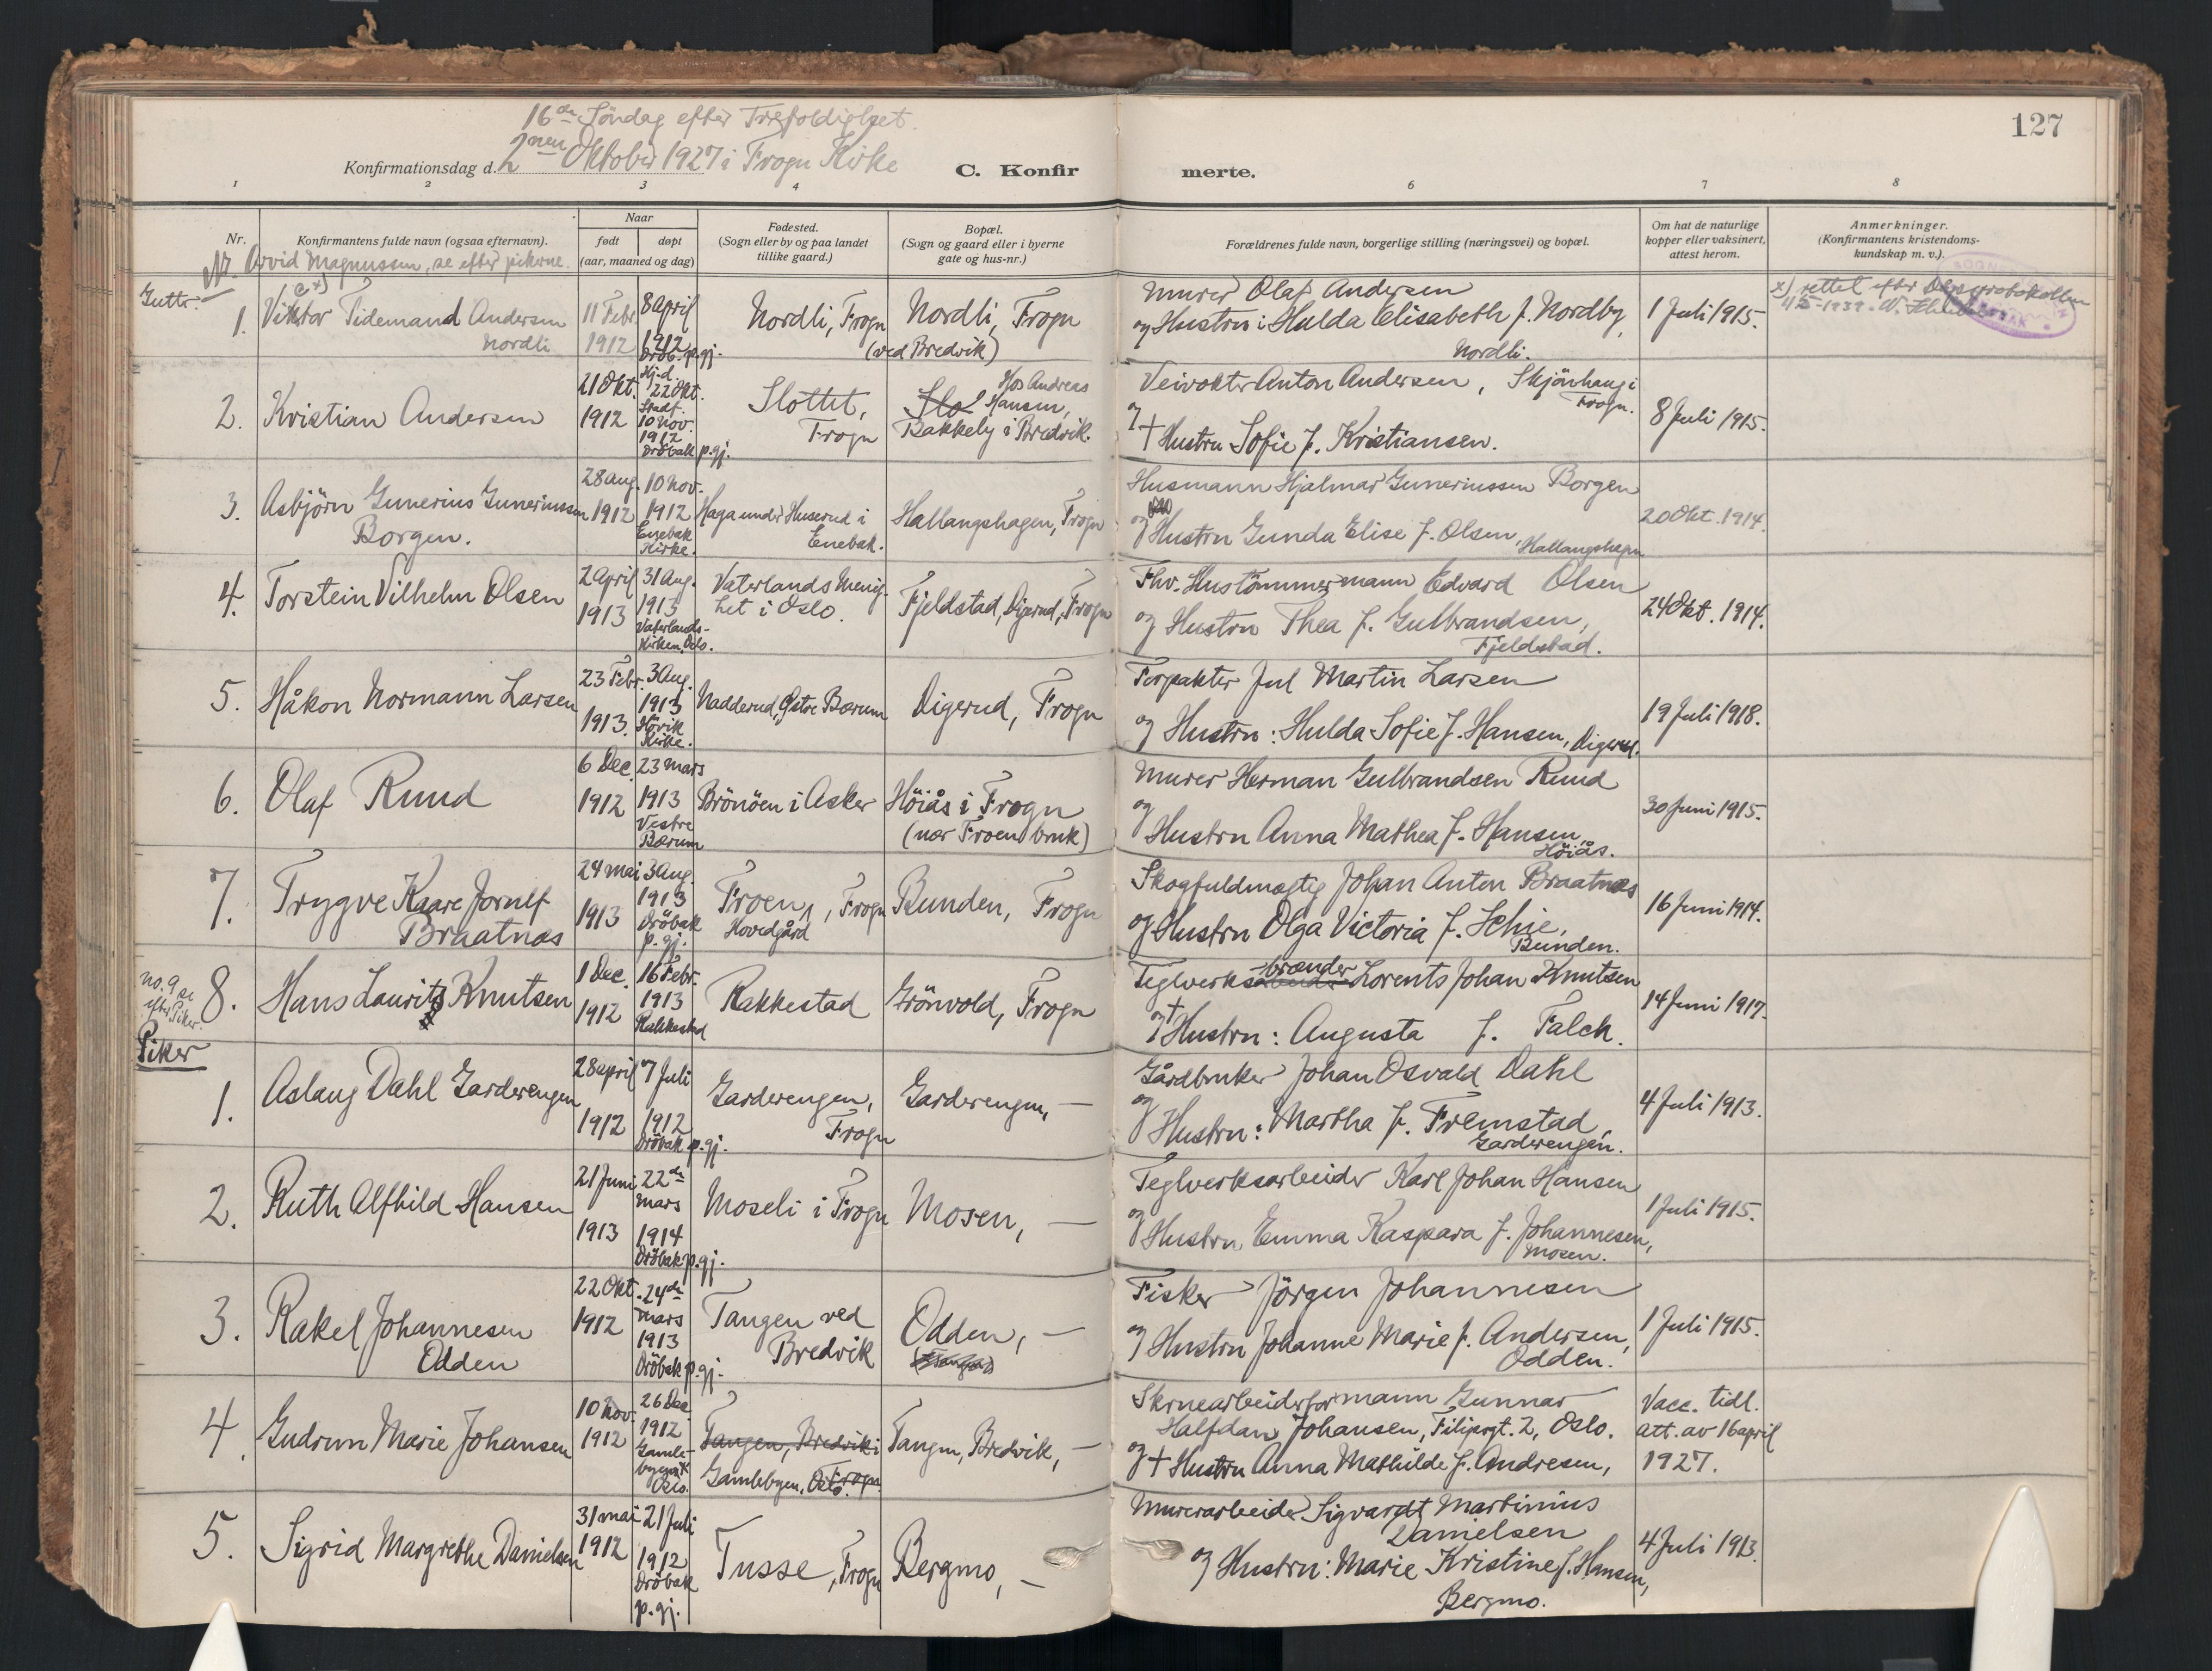 127
16de Söndag efter Trefoldighet.
Konfirmationsdag d. 2nen Oktober 1927 i Frogn Kirke
C. Konfirmerte.
1 2 3 4 6 7 8
Nr.
Konfirmantens fulde navn (ogsaa efternavn).
Naar
født
døpt
(aar, maaned og dag)
Fødested.
(Sogn eller by og paa landet
tillike gaard.)
Bopæl.
(Sogn og gaard eller i byerne
gate og hus-nr.)
Forældrenes fulde navn, borgerlige stilling (næringsvei) og bopæl.
Om hat de naturlige
kopper eller vaksinert,
attest herom.
Anmerkninger.
(Konfirmantens kristendoms-
kundskap m. v.).
Arvid Magnussen, se efter pikerne.
Gutter
1.
Viktor Tidemand Andersen
Nordli
11 Febr.
1912
8 April
1912
Dröb. p.gj.
Nordli, Frogn
Nordli, Frogn
(ved Bredvik)
Murer Olaf Andersen
og Hustru: Hulda Elisabeth f. Nordby,
Nordli.
1 Juli 1915.
x) rettet efter
1939.
2.
Kristian Andersen
21 Okt.
1912
Hj.d.
22 Okt.
Stadf.
10 Nov.
1912
Dröbak p.gj.
Slottet,
Frogn
Hos Andreas
Slo Hansen,
Bakkely i Bredvik.
Veivokter Anton Andersen, Skjönhaug i
Frogn.
og
+ Hustru Sofie f. Kristiansen.
8 Juli 1915.
3.
Asbjörn Gunerius Guneriussen
Borgen.
28 Aug.
1912
10 Nov.
1912
Enebak
Kirke.
Haga under Huserud i
Enebak.
Hallangshagen, Frogn
Husmann Hjalmar Guneriussen Borgen
og Hustru Gunda Elise f. Olsen, Hallangshagen
20 Okt. 1914.
4.
Torstein Vilhelm Olsen
2 April
1913
31 Aug.
1913
Vaterlands-
Kirken, Oslo.
Vaterlands Menig-
het i Oslo.
Fjeldstad, Digerud, Frogn
Fhv. Hustömmermann Edvard Olsen
og Hustru Thea f. Gulbrandsen,
Fjeldstad.
24 Okt. 1914.
5.
Håkon Normann Larsen
23 Febr.
1913.
3 Aug.
1913
Hövik
Kirke.
Nadderud, Østre Bærum
Digerud, Frogn
Forpakter Jul Martin Larsen
og Hustru: Hulda Sofie f. Hansen, Digerud.
19 Juli 1918.
6.
Olaf Ruud
6 Dec.
1912
23 Mars
1913
Vestre
Bærum
Brönöen i Asker
Höiås i Frogn
(nær Froen bruk)
Murer Herman Gulbrandsen Ruud
og
Hustru Anna Mathea f. Hansen,
Höiås.
30 Juni 1915.
7.
Trygve Kaare Jornulf
Braatnæs
24 Mai
1913
3 Aug.
1913
Dröbak
p.gj.
Froen, Frogn
Hovedgård
Bunden, Frogn
Skogfuldmægtig Johan Anton Braatnæs
og Hustru Olga Victoria f. Schie,
Bunden.
16 Juni 1914.
no. 9 se
efter Piker.
8.
Hans Laurits Knutsen
1 Dec.
1912
16 Febr.
1913
Rakkestad
Rakkestad
Grönvold, Frogn
brænder
Teglverksarbeider Lorents Johan Knutsen
og + Hustru: Augusta f. Falck.
14 Juni 1917.
Piker
1.
Aslaug Dahl Garderengen
28 April
1912
7 Juli
1912
Dröbak p.gj.
Garderengen,
Frogn
Garderengen, —
Gårdbruker Johan Osvald Dahl
og
Hustru: Martha f. Fremstad,
Garderengen.
4 Juli 1913.
2.
Ruth Alfhild Hansen
21 Juni
1913
22de
Mars
1914
Dröbak p.gj.
Moseli i Frogn
Mosen, —
Teglverksarbeider Karl Johan Hansen
og
Hustru Emma Kaspara f. Johannesen,
Mosen.
1 Juli 1915.
3.
Rakel Johannesen
Odden
22 Okt.
1912
24de
Mars
1913
Dröbak p.gj.
Tangen ved
Bredvik
Odden, —
Fisker Jörgen Johannesen
og Hustru Johanne Marie f. Andersen,
Odden.
1 Juli 1915.
4.
Gudrun Marie Johansen
10 Nov.
1912
26 Dec.
1912
Gamle-
byen
Oslo.
Tangen, Bredvik i
Gamlebyen, Oslo. Frogn
Tangen, Bredvik, —
Skruearbeiderformann Gunnar
Halfdan Johansen, Filipsgt. 2, Oslo.
og + Hustru Anna Mathilde f. Andresen,
Vacc. tidl.
att. av 16 april
1927.
5.
Sigrid Margrethe Danielsen
31 Mai
1912
21 Juli
1912
Dröbak
p.gj.
Tusse, Frogn
Bergmo, —
Murerarbeider Sigvardt Martinius
Danielsen
og Hustru: Marie Kristine f. Hansen,
Bergmo.
4 Juli 1913.